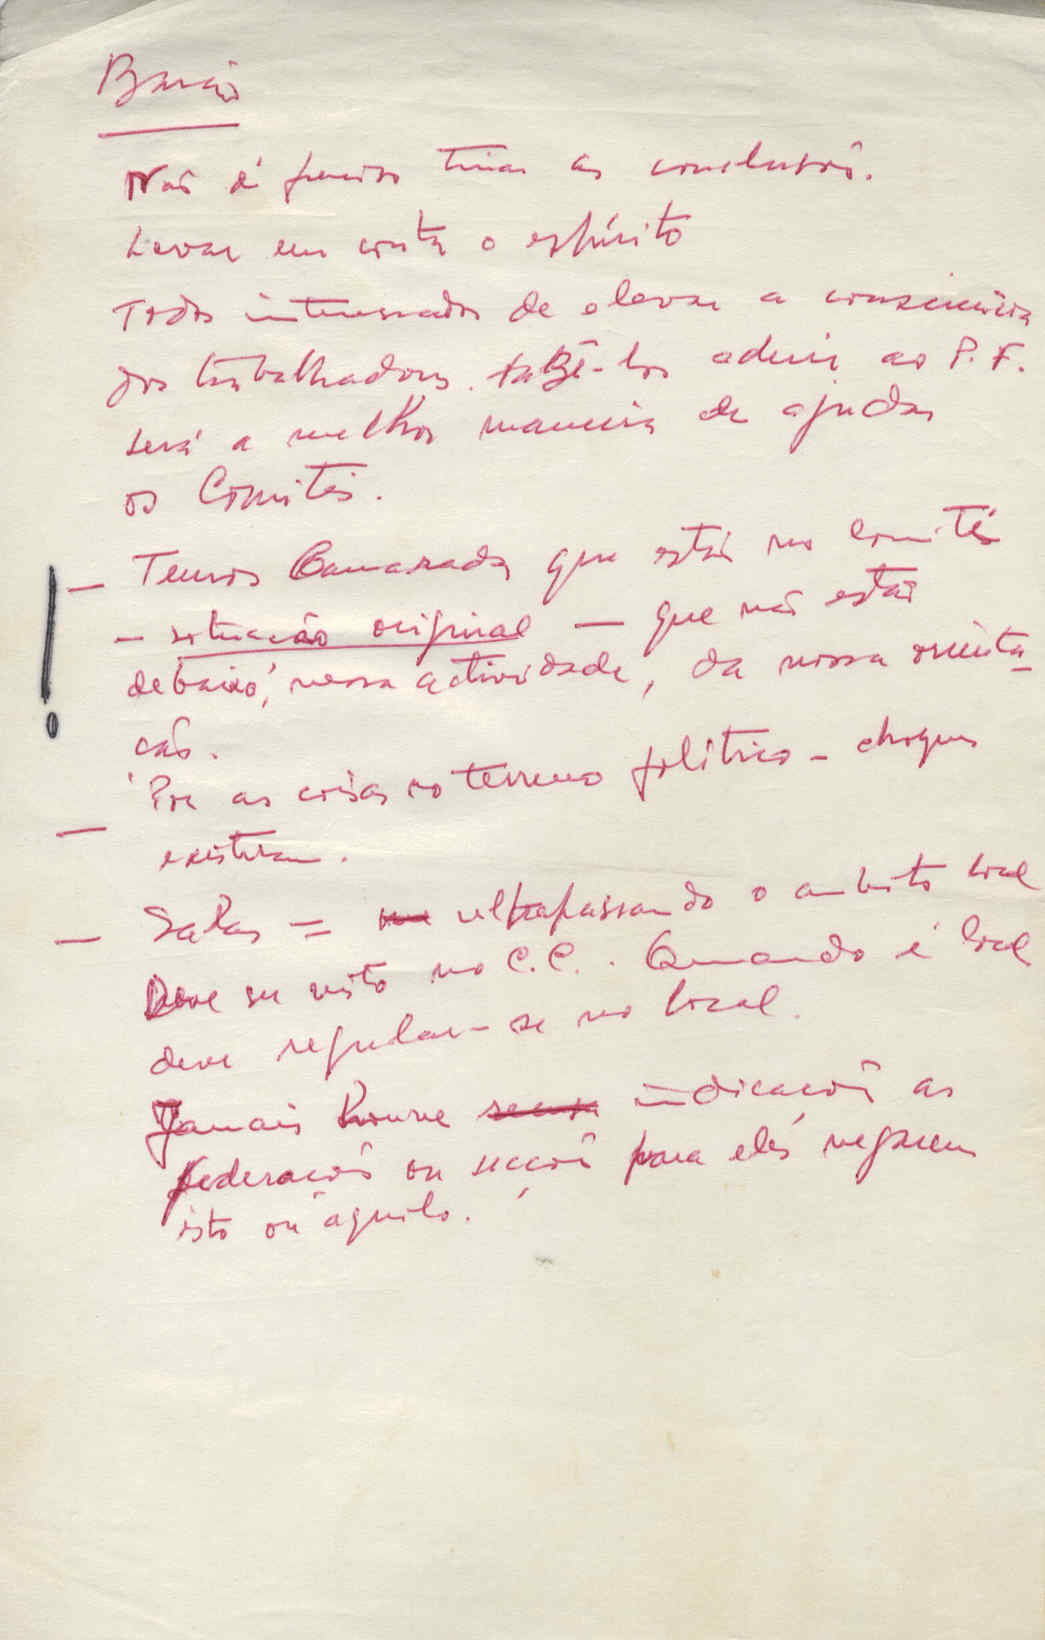 Barão
Não é preciso tirar as conclusões.
Levar em conta o espírito
Todos interessados de elevar a consciência
dos trabalhadores. fazê-los aderir ao P.F.
será a melhor maneira de ajudar
os Comités.
— Temos Camaradas que estão nos Comités
— situação original — que não estão
debaixo, nessa actividade, da nossa orienta-
ção.
— Pôr as coisas no terreno político - choques
existiram.
— Salas = ultrapassando o ambito local
Deve ser visto no C.C.. Quando é local
deve regular-se no local.
Jamais houve indicações as
federações ou secções para elés negarem
isto ou aquilo.